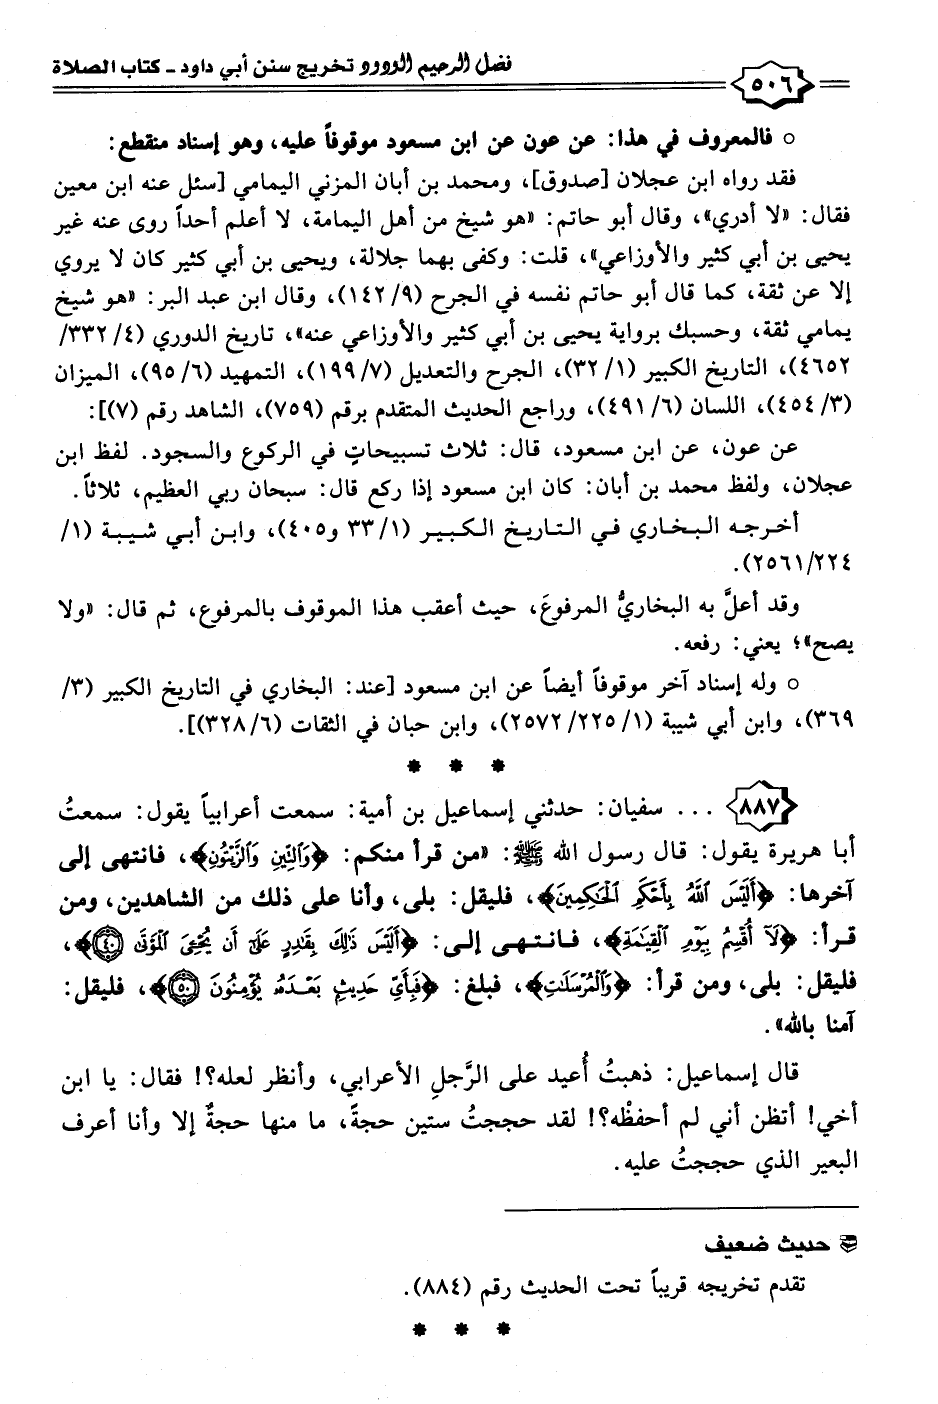 فضل الرحيم الودود تخريج سنن أبي داود - كتاب الصلاة
٥٠٦
○ فالمعروف في هذا: عن عون عن ابن مسعود موقوفاً عليه، وهو إسناد منقطع:
فقد رواه ابن عجلان [صدوق]، ومحمد بن أبان المزني اليمامي [سئل عنه ابن معين
فقال: «لا أدري»، وقال أبو حاتم: «هو شيخ من أهل اليمامة، لا أعلم أحداً روى عنه غير
يحيى بن أبي كثير والأوزاعي»، قلت: وكفى بهما جلالة، ويحيى بن أبي كثير كان لا يروي
إلا عن ثقة، كما قال أبو حاتم نفسه في الجرح (٩/ ١٤٢)، وقال ابن عبد البر: «هو شيخ
يمامي ثقة، وحسبك برواية يحيى بن أبي كثير والأوزاعي عنه»، تاريخ الدوري (٤/ ٣٣٢/
٤٦٥٢)، التاريخ الكبير (١/ ٣٢)، الجرح والتعديل (٧/ ١٩٩)، التمهيد (٦/ ٩٥)، الميزان
(٣/ ٤٥٤)، اللسان (٦/ ٤٩١)، وراجع الحديث المتقدم برقم (٧٥٩)، الشاهد رقم (٧)]:
عن عون، عن ابن مسعود، قال: ثلاث تسبيحاتٍ في الركوع والسجود. لفظ ابن
عجلان، ولفظ محمد بن أبان: كان ابن مسعود إذا ركع قال: سبحان ربي العظيم، ثلاثاً.
أخرجه البخاري في التاريخ الكبير (١/ ٣٣ و٤٠٥)، وابن أبي شيبة (١/
٢٢٤/ ٢٥٦١).
وقد أعلَّ به البخاريُّ المرفوعَ، حيث أعقب هذا الموقوف بالمرفوع، ثم قال: «ولا
يصح»؛ يعني: رفعه.
○ وله إسناد آخر موقوفاً أيضاً عن ابن مسعود [عند: البخاري في التاريخ الكبير (٣/
٣٦٩)، وابن أبي شيبة (١/ ٢٢٥/ ٢٥٧٢)، وابن حبان في الثقات (٦/ ٣٢٨)].
* * *
٨٨٧ ... سفيان: حدثني إسماعيل بن أمية: سمعت أعرابياً يقول: سمعتُ
أبا هريرة يقول: قال رسول الله ﷺ: «من قرأ منكم: ﴿وَٱلتِّينِ وَٱلزَّيْتُونِ﴾، فانتهى إلى
آخرها: ﴿أَلَيْسَ ٱللَّهُ بِأَحْكَمِ ٱلْحَٰكِمِينَ﴾، فليقل: بلى، وأنا على ذلك من الشاهدين، ومن
قرأ: ﴿لَآ أُقْسِمُ بِيَوْمِ ٱلْقِيَٰمَةِ﴾، فانتهى إلى: ﴿أَلَيْسَ ذَٰلِكَ بِقَٰدِرٍ عَلَىٰٓ أَن يُحْـِۧىَ ٱلْمَوْتَىٰ ٤٠﴾،
فليقل: بلى، ومن قرأ: ﴿وَٱلْمُرْسَلَٰتِ﴾، فبلغ: ﴿فَبِأَىِّ حَدِيثٍۭ بَعْدَهُۥ يُؤْمِنُونَ ٥٠﴾، فليقل:
آمنا بالله».
قال إسماعيل: ذهبتُ أُعيد على الرَّجلِ الأعرابي، وأنظر لعله؟! فقال: يا ابن
أخي! أتظن أني لم أحفظْه؟! لقد حججتُ ستين حجةً، ما منها حجةٌ إلا وأنا أعرف
البعير الذي حججتُ عليه.
حديث ضعيف
تقدم تخريجه قريباً تحت الحديث رقم (٨٨٤).
* * *